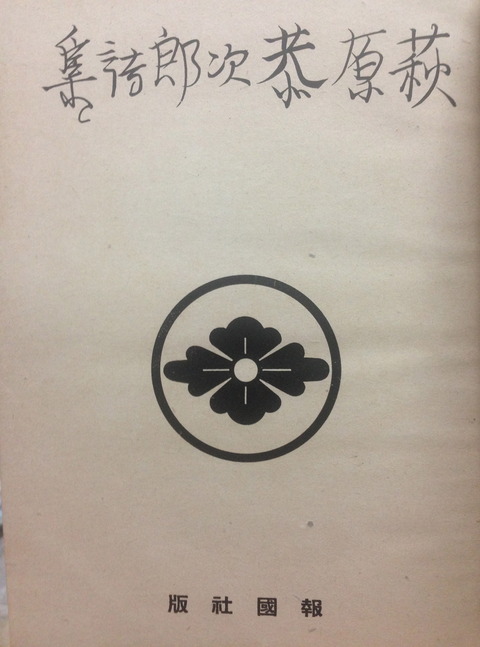 萩原恭次郎詩集
報國社版